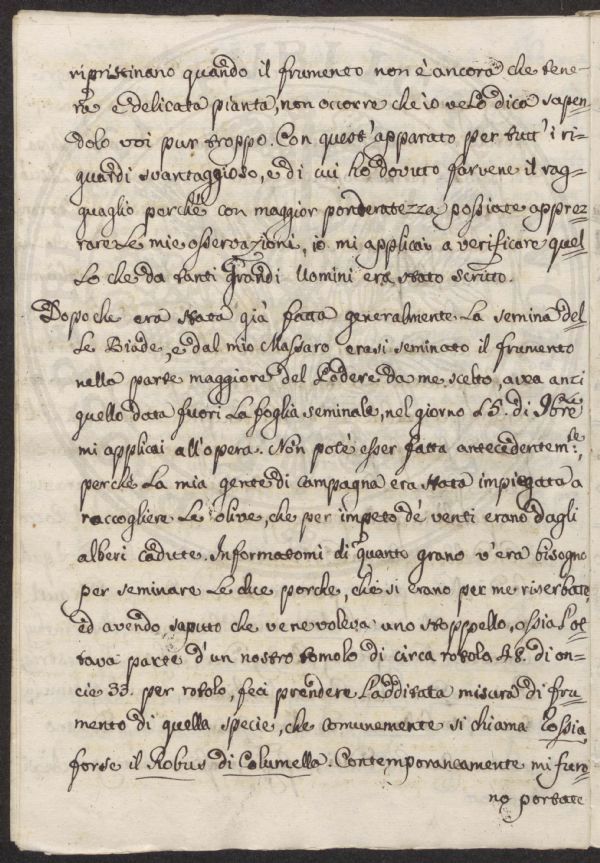 ripristinano quando il frumento non è ancora che tene-
ra e delicata pianta, non occorre che io ve lo dica sapen-
dolo voi pur troppo. Con quest'apparato per tutt'i ri-
guardi svantaggioso, e di cui ho dovuto farvene il rag-
guaglio perchè con maggior ponderatezza possiate apprez-
zare le mie osservazioni, io mi applicai a verificare quel-
lo che da tanti grandi Uomini era stato scritto.
Dopo che era stata già fatta generalmente la semina del-
le Biade, e dal mio Massaro erasi seminato il frumento
nella parte maggiore del Podere da me scelto, avea anzi
quello data fuori la foglia seminale, nel giorno 15. di 9bre
mi applicai all'opera. Non potè esser fatta antecedentem:te,
perchè la mia gente di campagna era stata impiegata a
raccogliere le olive, che per impeto de' venti erano dagli
alberi cadute. Informatomi di quanto grano v'era bisogno
per seminare le due porche, che si erano per me riserbate,
ed avendo saputo che ve ne voleva uno stoppello, ossia l'ot-
tava parte d'un nostro tomolo di circa rotola 48. di on-
cie 33. per rotolo, feci prendere l'additata misura di fru-
mento di quella specie, che comunemente si chiama Rossia,
forse il Robus di Columella. Contemporaneamente mi furo-
no portate